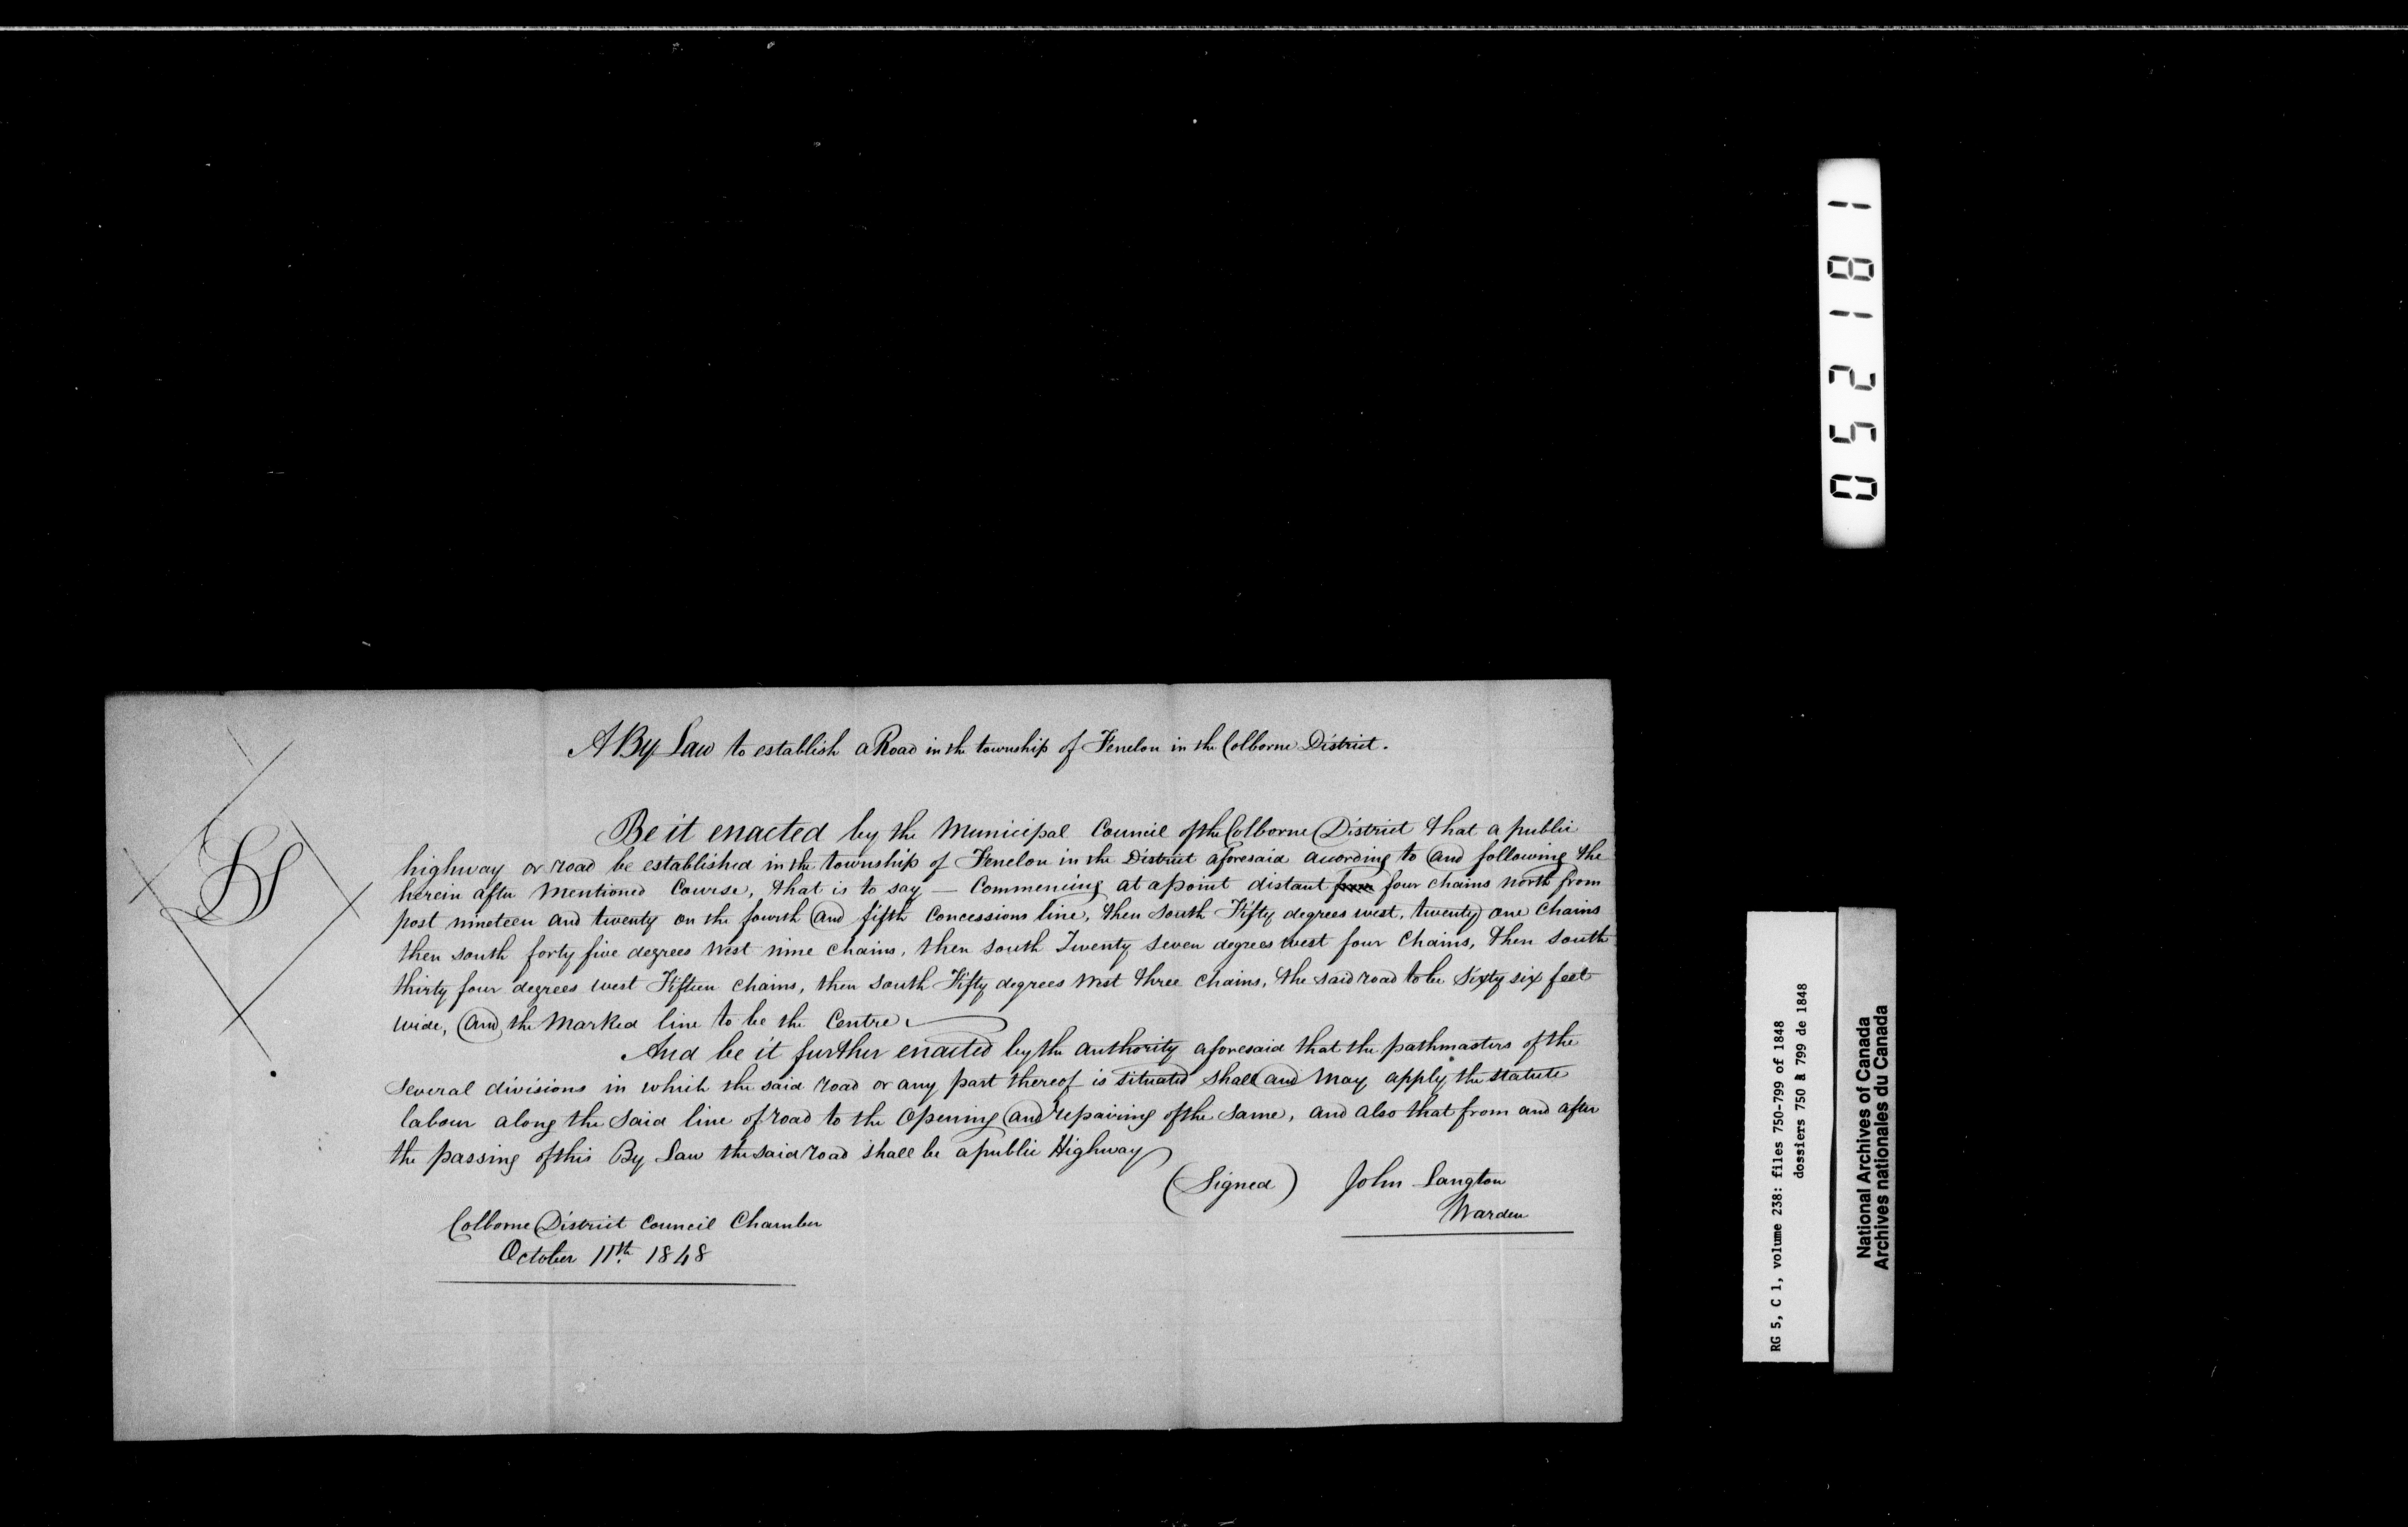 A By Law to establish a Road in the township of Fenelon in the Colborne District.
Be it enacted by the Municipal Council of the Colborne District that a public
highway or road be established in the township of Fenelon in the District aforesaid according to and following the
herein after Mentioned Course, that is to say — Commencing at a point distant from four chains north from
post nineteen and twenty on the fourth and fifth Concessions line, then South Fifty degrees west, twenty one Chains
then south forty five degrees West nine Chains, then South Twenty Seven degrees west four Chains, then South
thirty four degrees west Fifteen Chains, then South Fifty degrees West three Chains, the said road to be Sixty six feet
wide, and the Marked line to be the Centre.
And be it further enacted by the authority aforesaid that the pathmasters of the
Several divisions in which the said road or any part thereof is situated shall and may apply the statute
labour along the said line of road to the Opening and repairing of the Same, and also that from and after
the passing of this By Law the said road shall be a public Highway
(Signed) John Langton
Warden
Colborne District Council Chamber
October 11th. 1848
052181
RG 5, C 1, volume 238: files 750-799 of 1848
dossiers 750 à 799 de 1848
National Archives of Canada
Archives nationales du Canada